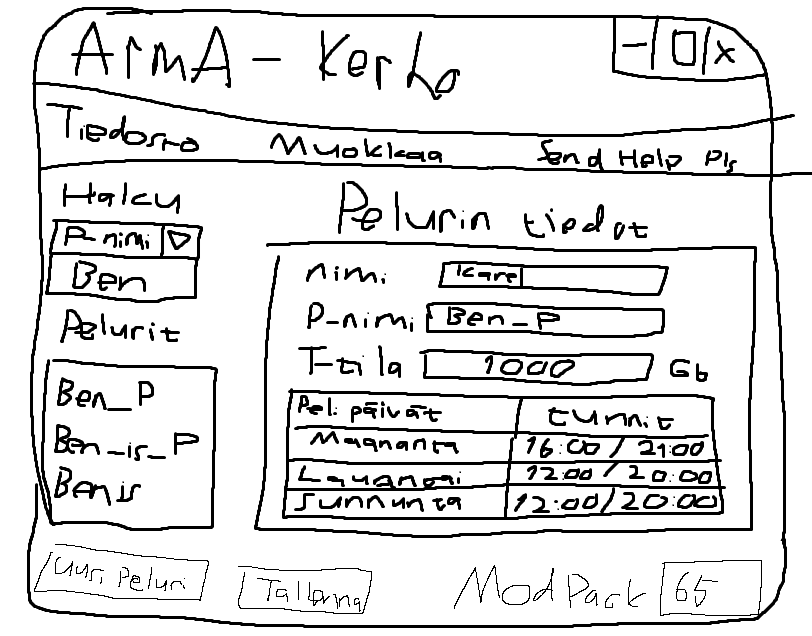 ArmA - Kerho
Tiedosto Muokkaa Send Help Pls
Haku
P-nimi
Ben
Pelurit
Ben_P
Ben_is_P
Benis
Pelurin tiedot
nimi Kare
P-nimi Ben_P
T-tila 1000 Gb
Peli päivät tunnit
Maananta 16:00 / 21:00
Lauantai 12:00 / 20:00
Sunnunta 12:00/20:00
Uusi Peluri Tallenna ModPack 65